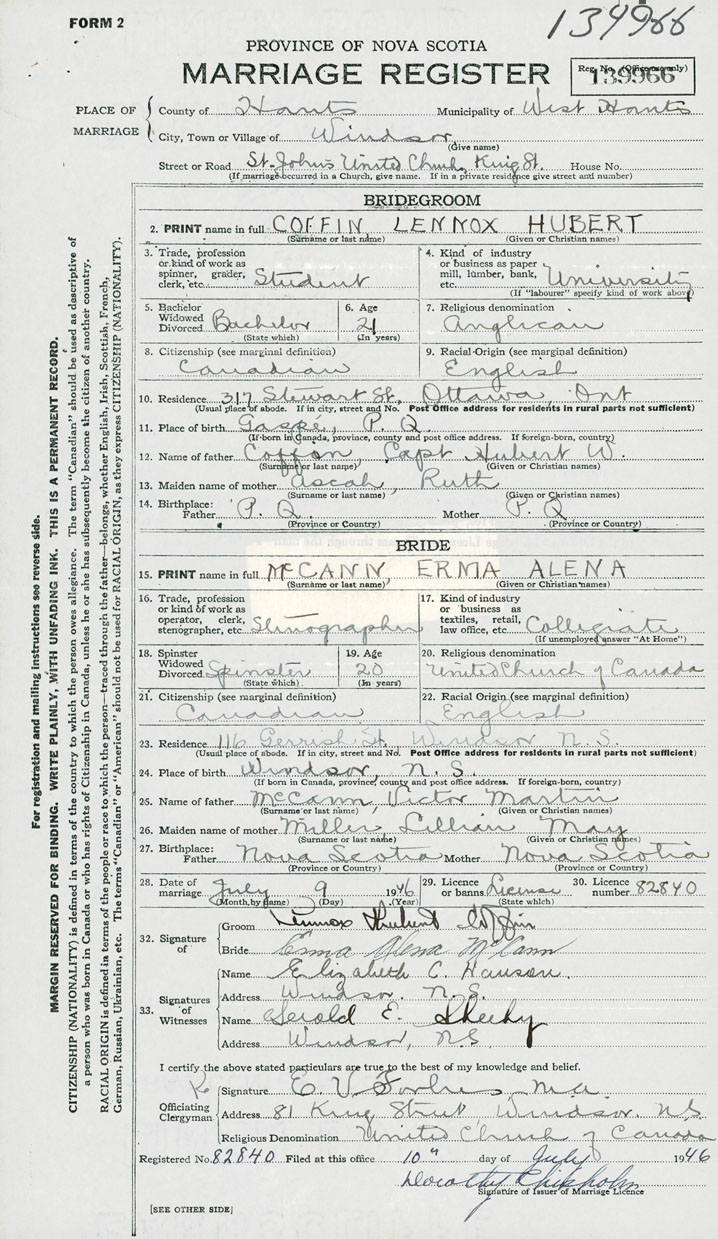 FORM 2
134966
PROVINCE OF NOVA SCOTIA
MARRIAGE REGISTER
Reg. No. (Office use only)
139966
PLACE OF MARRIAGE
County of Hants Municipality of West Hants
City, Town or Village of Windsor
(Give name)
Street or Road St. John's United Church, King St. House No.
(If marriage occurred in a Church, give name. If in a private residence give street and number)
BRIDEGROOM
2. PRINT name in full COFFIN, LENNOX HUBERT
(Surname or last name) (Given or Christian names)
3. Trade, profession or kind of work as spinner, grader, clerk, etc. Student
4. Kind of industry or business as paper mill, lumber, bank, etc. University
(If "labourer" specify kind of work above)
5. Bachelor Widowed Divorced Bachelor
(State which)
6. Age 21
(In years)
7. Religious denomination Anglican
8. Citizenship (see marginal definition) Canadian
9. Racial-Origin (see marginal definition) English
10. Residence 317 Stewart St. Ottawa, Ont
(Usual place of abode. If in city, street and No. Post Office address for residents in rural parts not sufficient)
11. Place of birth Gaspe, P. Q.
(If born in Canada, province, county and post office address. If foreign-born, country)
12. Name of father Coffin, Capt Hubert W.
(Surname or last name) (Given or Christian names)
13. Maiden name of mother Ascah, Ruth
(Surname or last name) (Given or Christian names)
14. Birthplace: Father P. Q. Mother P. Q
(Province or Country) (Province or Country)
BRIDE
15. PRINT name in full McCANN, ERMA ALENA
(Surname or last name) (Given or Christian names)
16. Trade, profession or kind of work as operator, clerk, stenographer, etc. Stenographer
17. Kind of industry or business as textiles, retail, law office, etc. Collegiate
(If unemployed answer "At Home")
18. Spinster Widowed Divorced Spinster
(State which)
19. Age 20
(In years)
20. Religious denomination United Church of Canada
21. Citizenship (see marginal definition) Canadian
22. Racial Origin (see marginal definition) English
23. Residence 116 Gerrish St. Windsor N. S.
(Usual place of abode. If in city, street and No. Post Office address for residents in rural parts not sufficient)
24. Place of birth Windsor, N. S.
(If born in Canada, province, county and post office address. If foreign-born, country)
25. Name of father McCann, Victor Martin
(Surname or last name) (Given or Christian names)
26. Maiden name of mother Miller, Lillian May
(Surname or last name) (Given or Christian names)
27. Birthplace: Father Nova Scotia Mother Nova Scotia
(Province or Country) (Province or Country)
28. Date of marriage July 9 1946
(Month, by name) (Day) (Year)
29. Licence or banns License
(State which)
30. Licence number 82840
32. Signature of
Groom Lennox Hubert Coffin
Bride Erma Alena McCann
33. Signatures of Witnesses
Name Elizabeth C. Hanson.
Address Windsor. N. S.
Name Gerold E. Sheehy
Address Windsor, N.S.
I certify the above stated particulars are true to the best of my knowledge and belief.
Officiating Clergyman
Signature E. V. Forbes M.A.
Address 81 King Street Windsor. N.S
Religious Denomination United Church of Canada
Registered No. 82840 Filed at this office 10th day of July 1946
Dorothy Chisholm
Signature of Issuer of Marriage Licence
[SEE OTHER SIDE]
For registration and mailing instructions see reverse side.
MARGIN RESERVED FOR BINDING. WRITE PLAINLY, WITH UNFADING INK. THIS IS A PERMANENT RECORD.
CITIZENSHIP (NATIONALITY) is defined in terms of the country to which the person owes allegiance. The term "Canadian" should be used as descriptive of
a person who was born in Canada or who has rights of Citizenship in Canada, unless he or she has subsequently become the citizen of another country.
RACIAL ORIGIN is defined in terms of the people or race to which the person—traced through the father—belongs, whether English, Irish, Scottish, French,
German, Russian, Ukrainian, etc. The terms "Canadian" or "American" should not be used for RACIAL ORIGIN, as they express CITIZENSHIP (NATIONALITY).